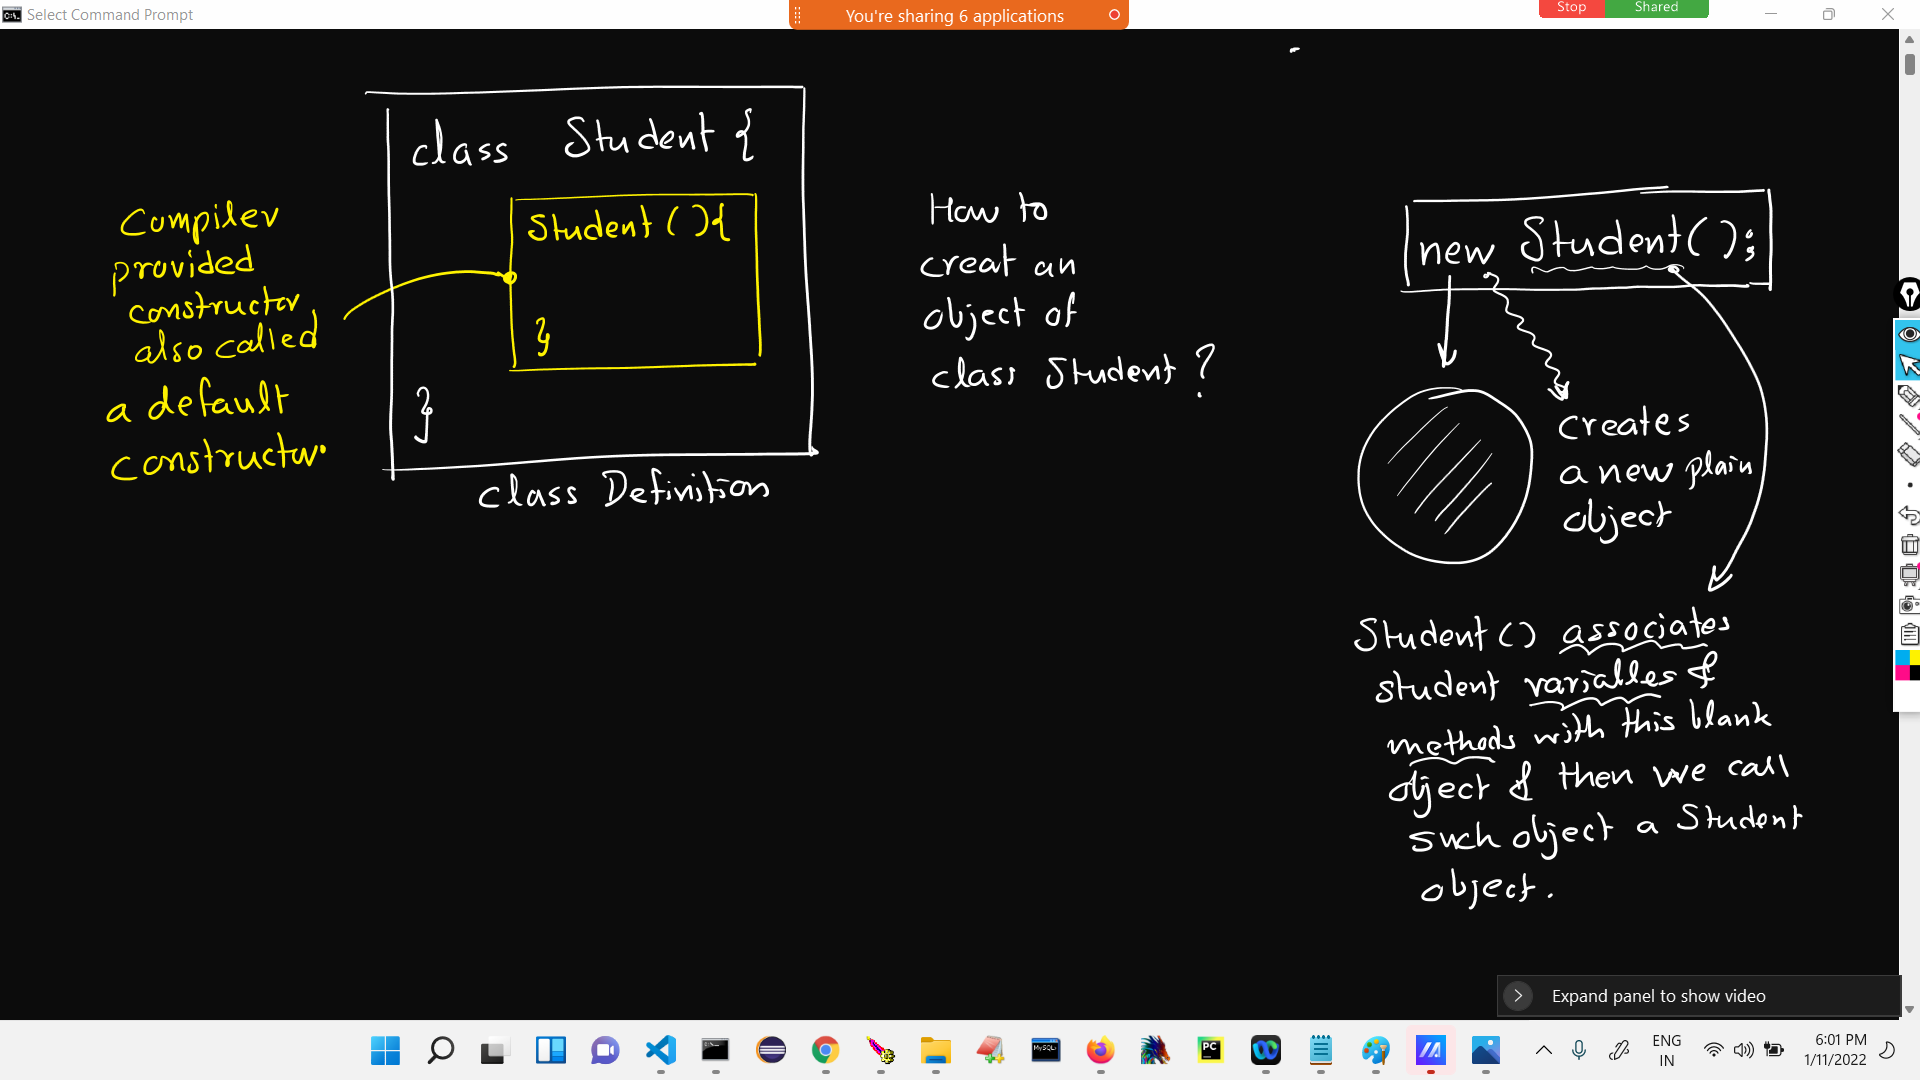 Select Command Prompt
You're sharing 6 applications
Stop
Shared
class Student {
Student ( ) {
}
}
class Definition
Compiler
provided
constructor,
also called
a default
constructor.
How to
creat an
object of
class Student ?
new Student( );
creates
a new plain
object
Student ( ) associates
student variables &
methods with this blank
object & then we call
such object a Student
object.
Expand panel to show video
MySQL
PC
ENG
IN
6:01 PM
1/11/2022